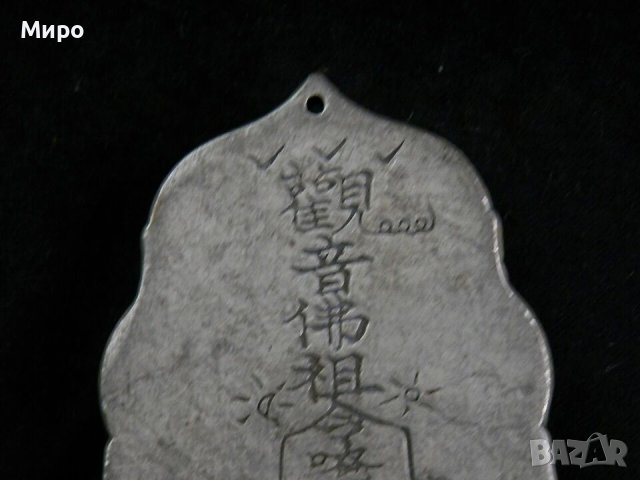 Миро
觀
音
佛
祖
令
BAZAR